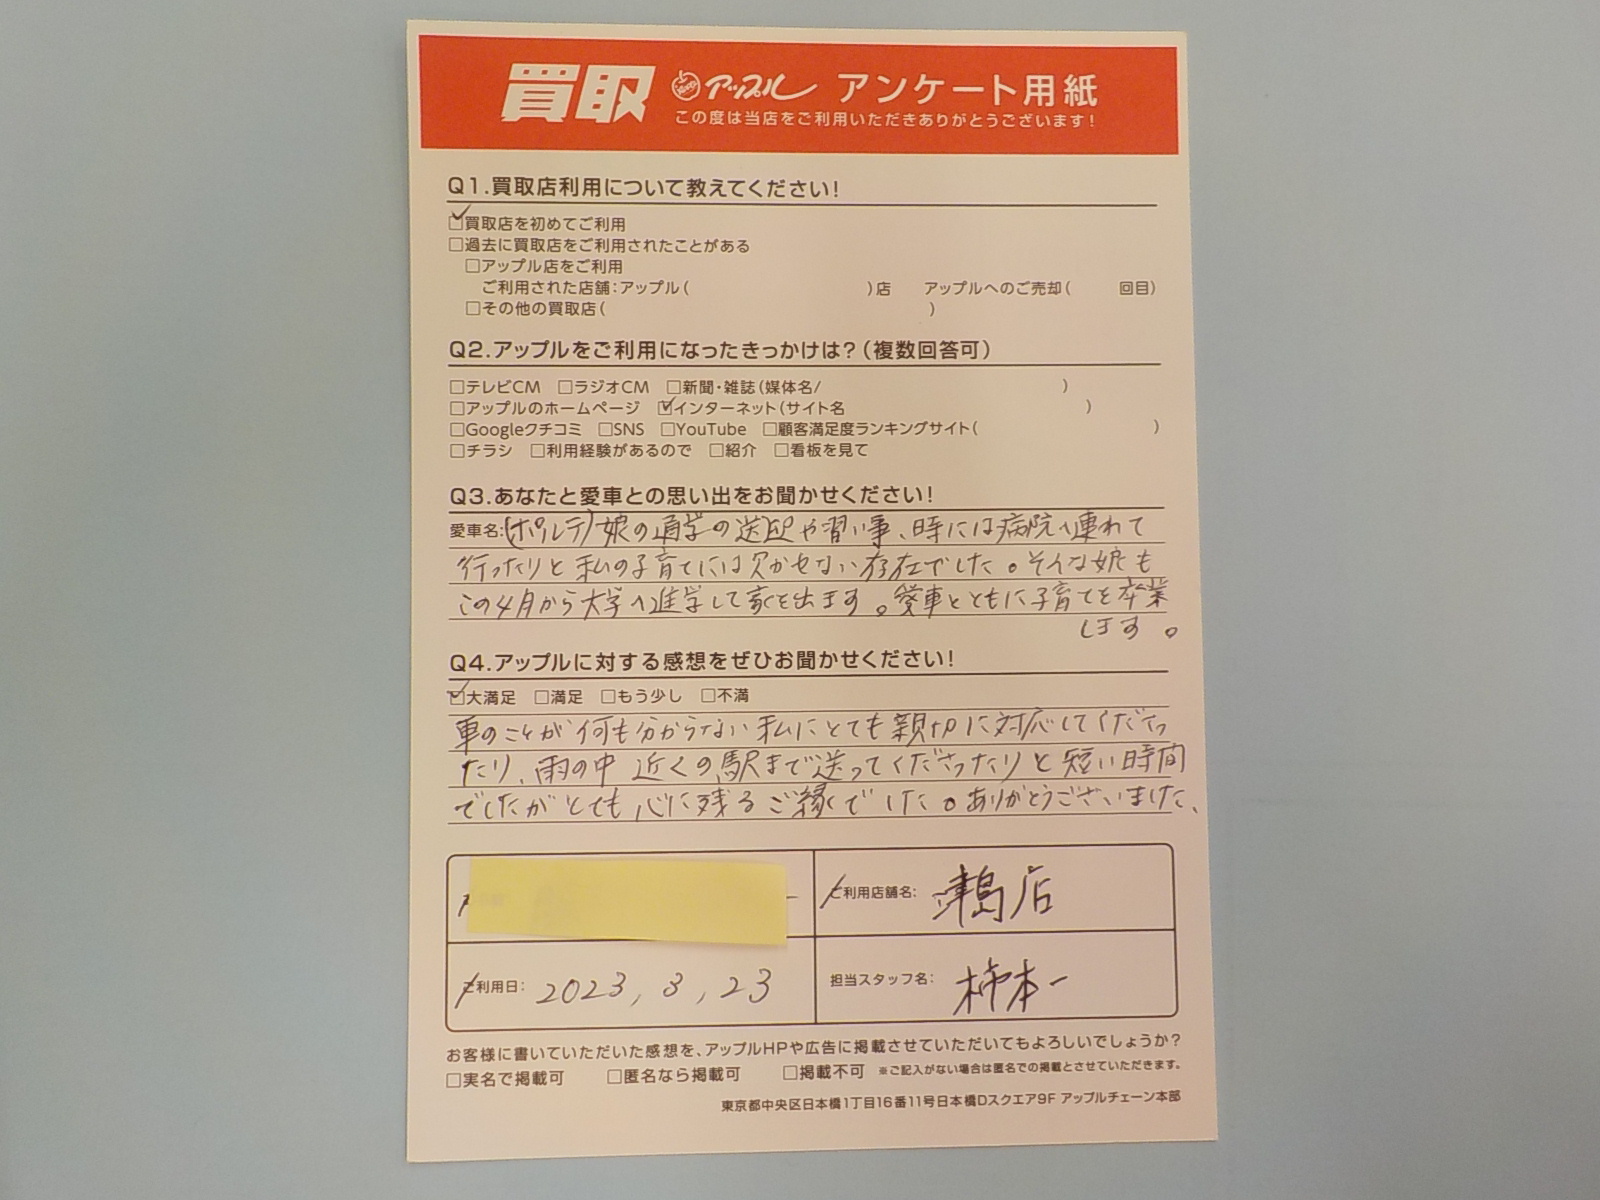 買取 アップル アンケート用紙
この度は当店をご利用いただきありがとうございます!
Q1.買取店利用について教えてください!
☑買取店を初めてご利用
□過去に買取店をご利用されたことがある
□アップル店をご利用
ご利用された店舗:アップル( )店 アップルへのご売却( 回目)
□その他の買取店( )
Q2.アップルをご利用になったきっかけは?(複数回答可)
□テレビCM □ラジオCM □新聞・雑誌(媒体名/ )
□アップルのホームページ ☑インターネット(サイト名 )
□Googleクチコミ □SNS □YouTube □顧客満足度ランキングサイト( )
□チラシ □利用経験があるので □紹介 □看板を見て
Q3.あなたと愛車との思い出をお聞かせください!
愛車名:(ポルテ)娘の通学の送迎や習い事、時には病院へ連れて
行ったりと私の子育てには欠かせない存在でした。そんな娘も
この4月から大学へ進学して家を出ます。愛車とともに子育てを卒業
します。
Q4.アップルに対する感想をぜひお聞かせください!
☑大満足 □満足 □もう少し □不満
車のことが何も分からない私にとても親切に対応してくださっ
たり、雨の中 近くの駅まで送ってくださったりと短い時間
でしたがとても心に残るご縁でした。ありがとうございました、
ご利用店舗名: 津島店
ご利用日: 2023, 3, 23
担当スタッフ名: 柿本一
お客様に書いていただいた感想を、アップルHPや広告に掲載させていただいてもよろしいでしょうか?
□実名で掲載可 □匿名なら掲載可 □掲載不可 ※ご記入がない場合は匿名での掲載とさせていただきます。
東京都中央区日本橋1丁目16番11号日本橋Dスクエア9F アップルチェーン本部